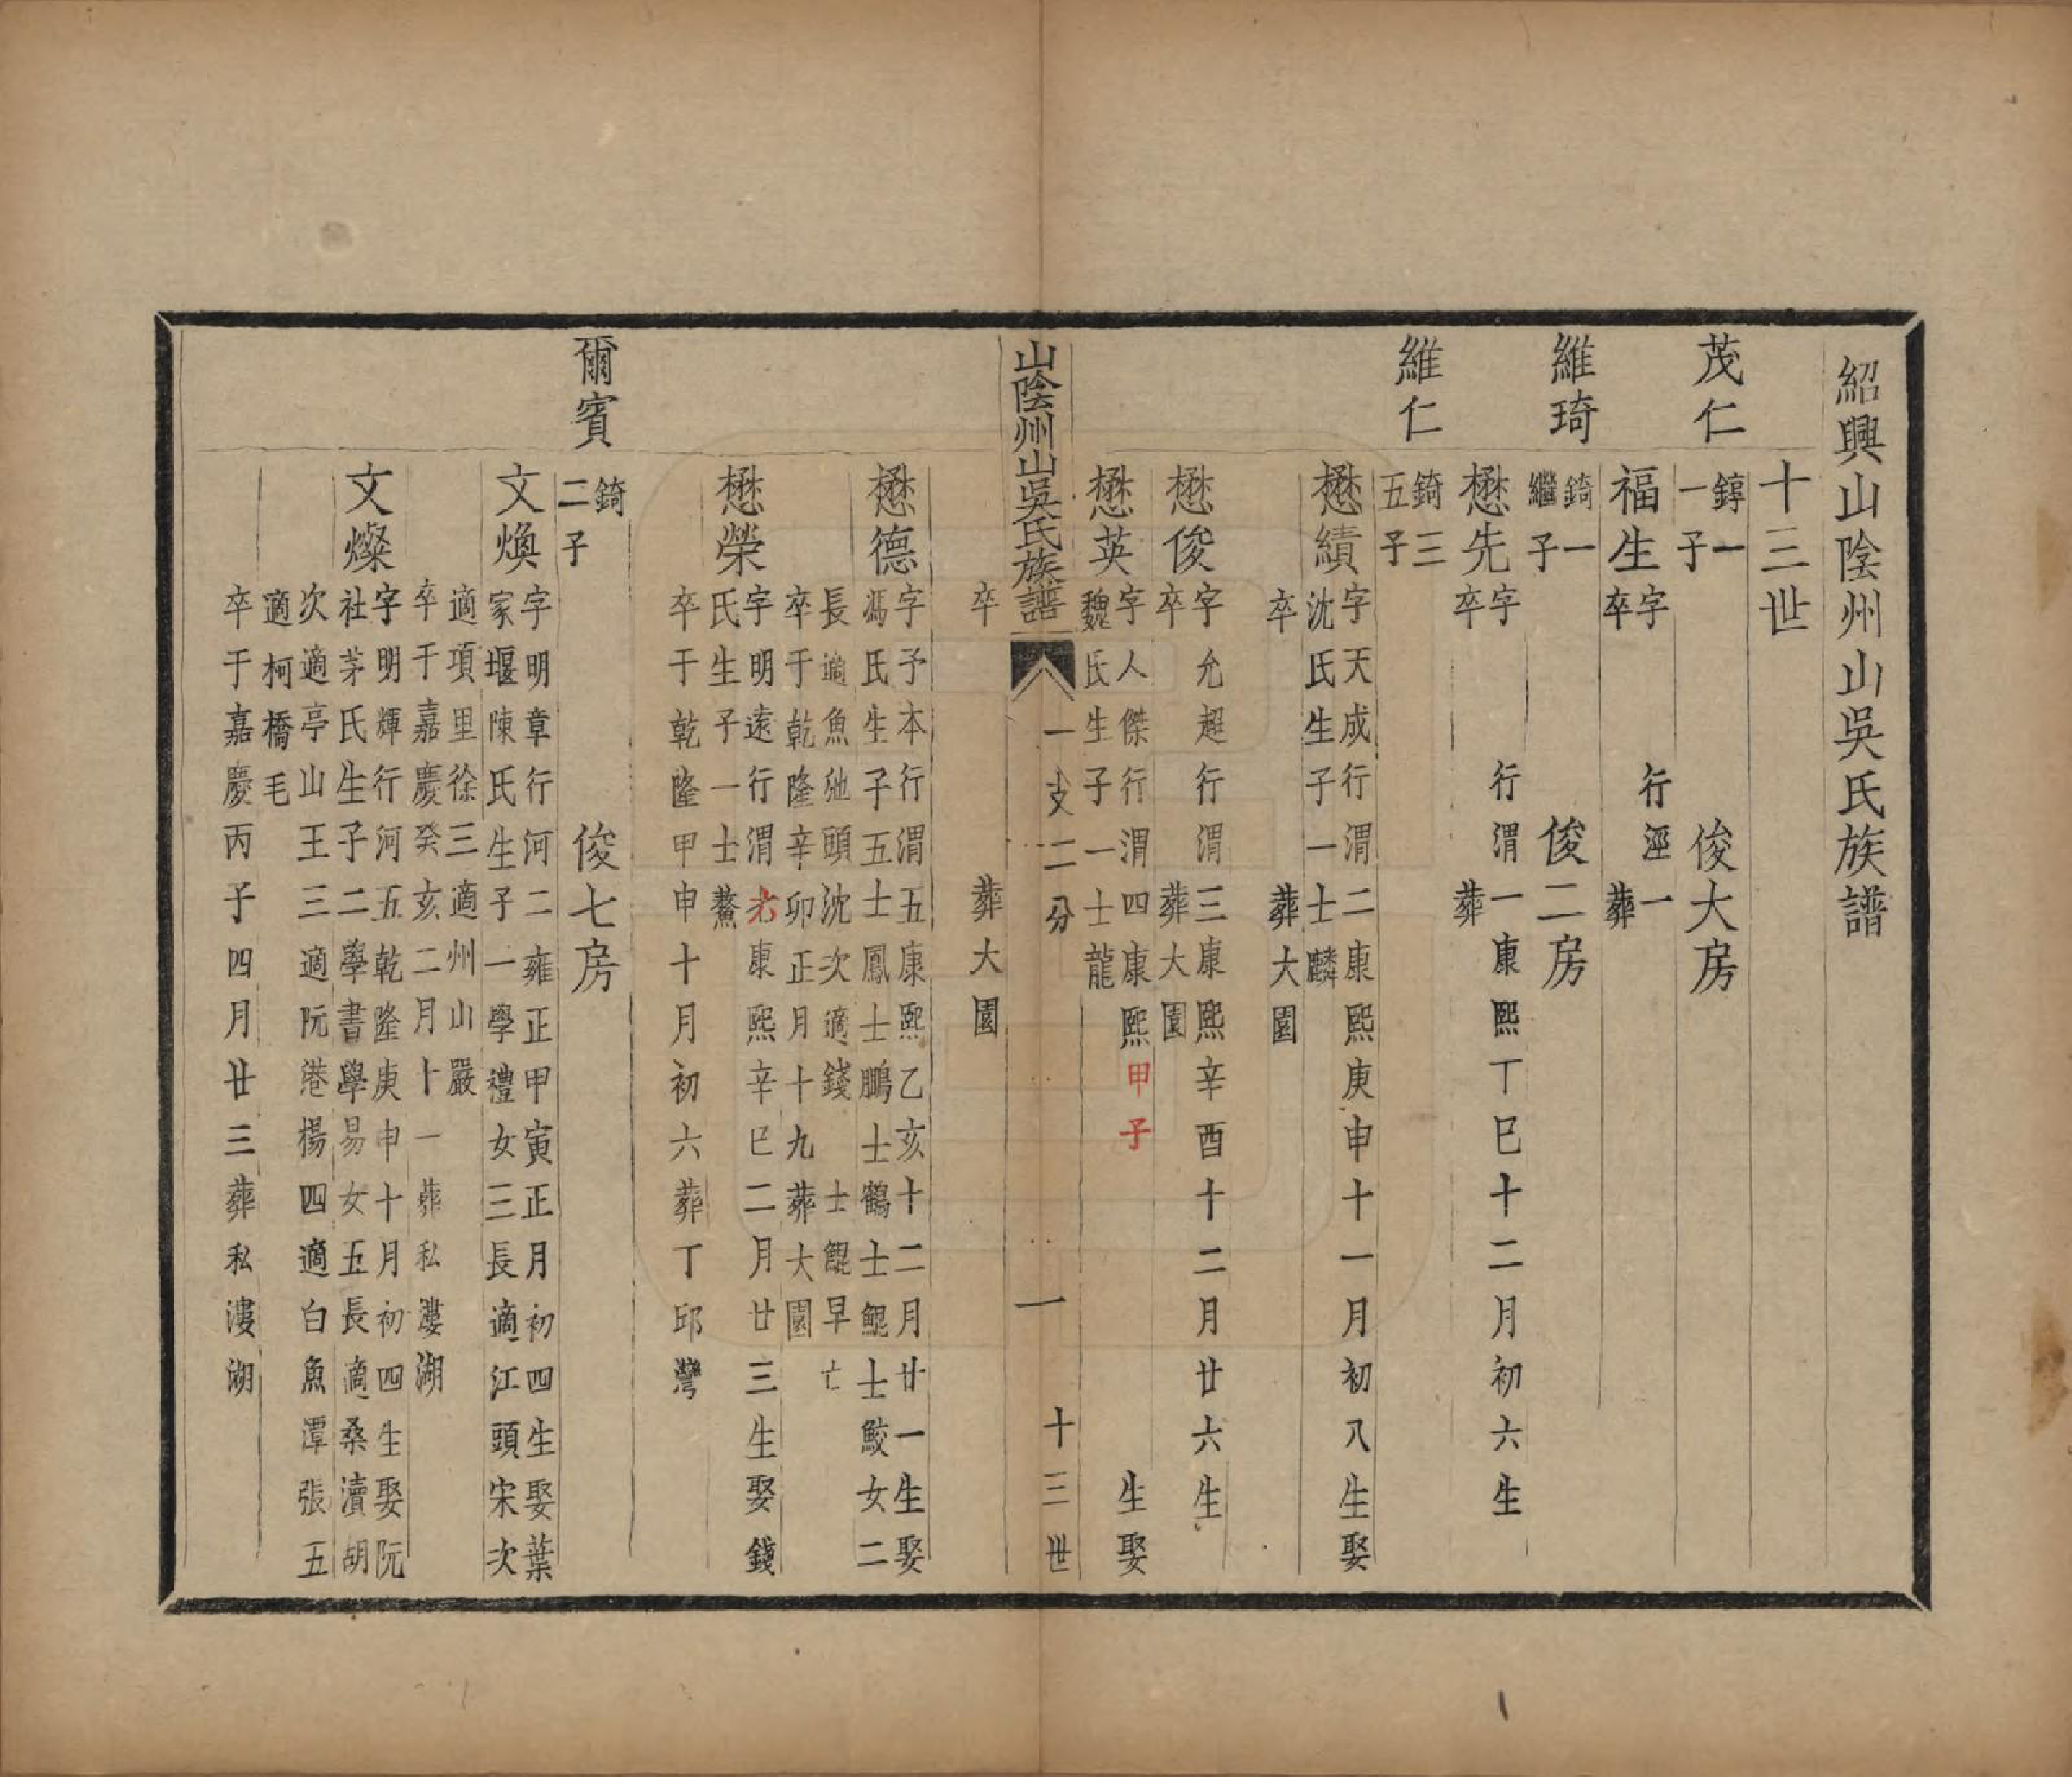 紹興山陰州山吳氏族譜
十三世
茂仁
錞一
一子
俊大房
福生
字 行涇一
卒 葬
維琦
錡一
繼子
俊二房
懋先
字 行渭一康熙丁巳十二月初六生
卒 葬
維仁
錡三
五子
懋績
字天成行渭二康熙庚申十一月初八生娶
沈氏生子一士麟
卒 葬大園
懋俊
字允超行渭三康熙辛酉十二月廿六生
卒 葬大園
懋英
字人傑行渭四康熙甲子 生娶
魏氏生子一士龍
山陰州山吳氏族譜 一支二分 一 十三世
卒 葬大園
懋德
字予本行渭五康熙乙亥十二月廿一生娶
馮氏生子五士鳳士鵬士鶴士鯤士鮫女二
長適魚池頭沈次適錢 士鯤早亡
卒于乾隆辛卯正月十九葬大園
懋榮
字明遠行渭六康熙辛巳二月廿三生娶錢
氏生子一士鰲
卒于乾隆甲申十月初六葬丁邱灣
爾賓
錡
二子
俊七房
文煥
字明章行河二雍正甲寅正月初四生娶葉
家堰陳氏生子一學禮女三長適江頭宋次
適項里徐三適州山嚴
卒于嘉慶癸亥二月十一葬私漊湖
文燦
字明輝行河五乾隆庚申十月初四生娶阮
社茅氏生子二學書學易女五長適桑瀆胡
次適亭山王三適阮港楊四適白魚潭張五
適柯橋毛
卒于嘉慶丙子四月廿三葬私漊湖